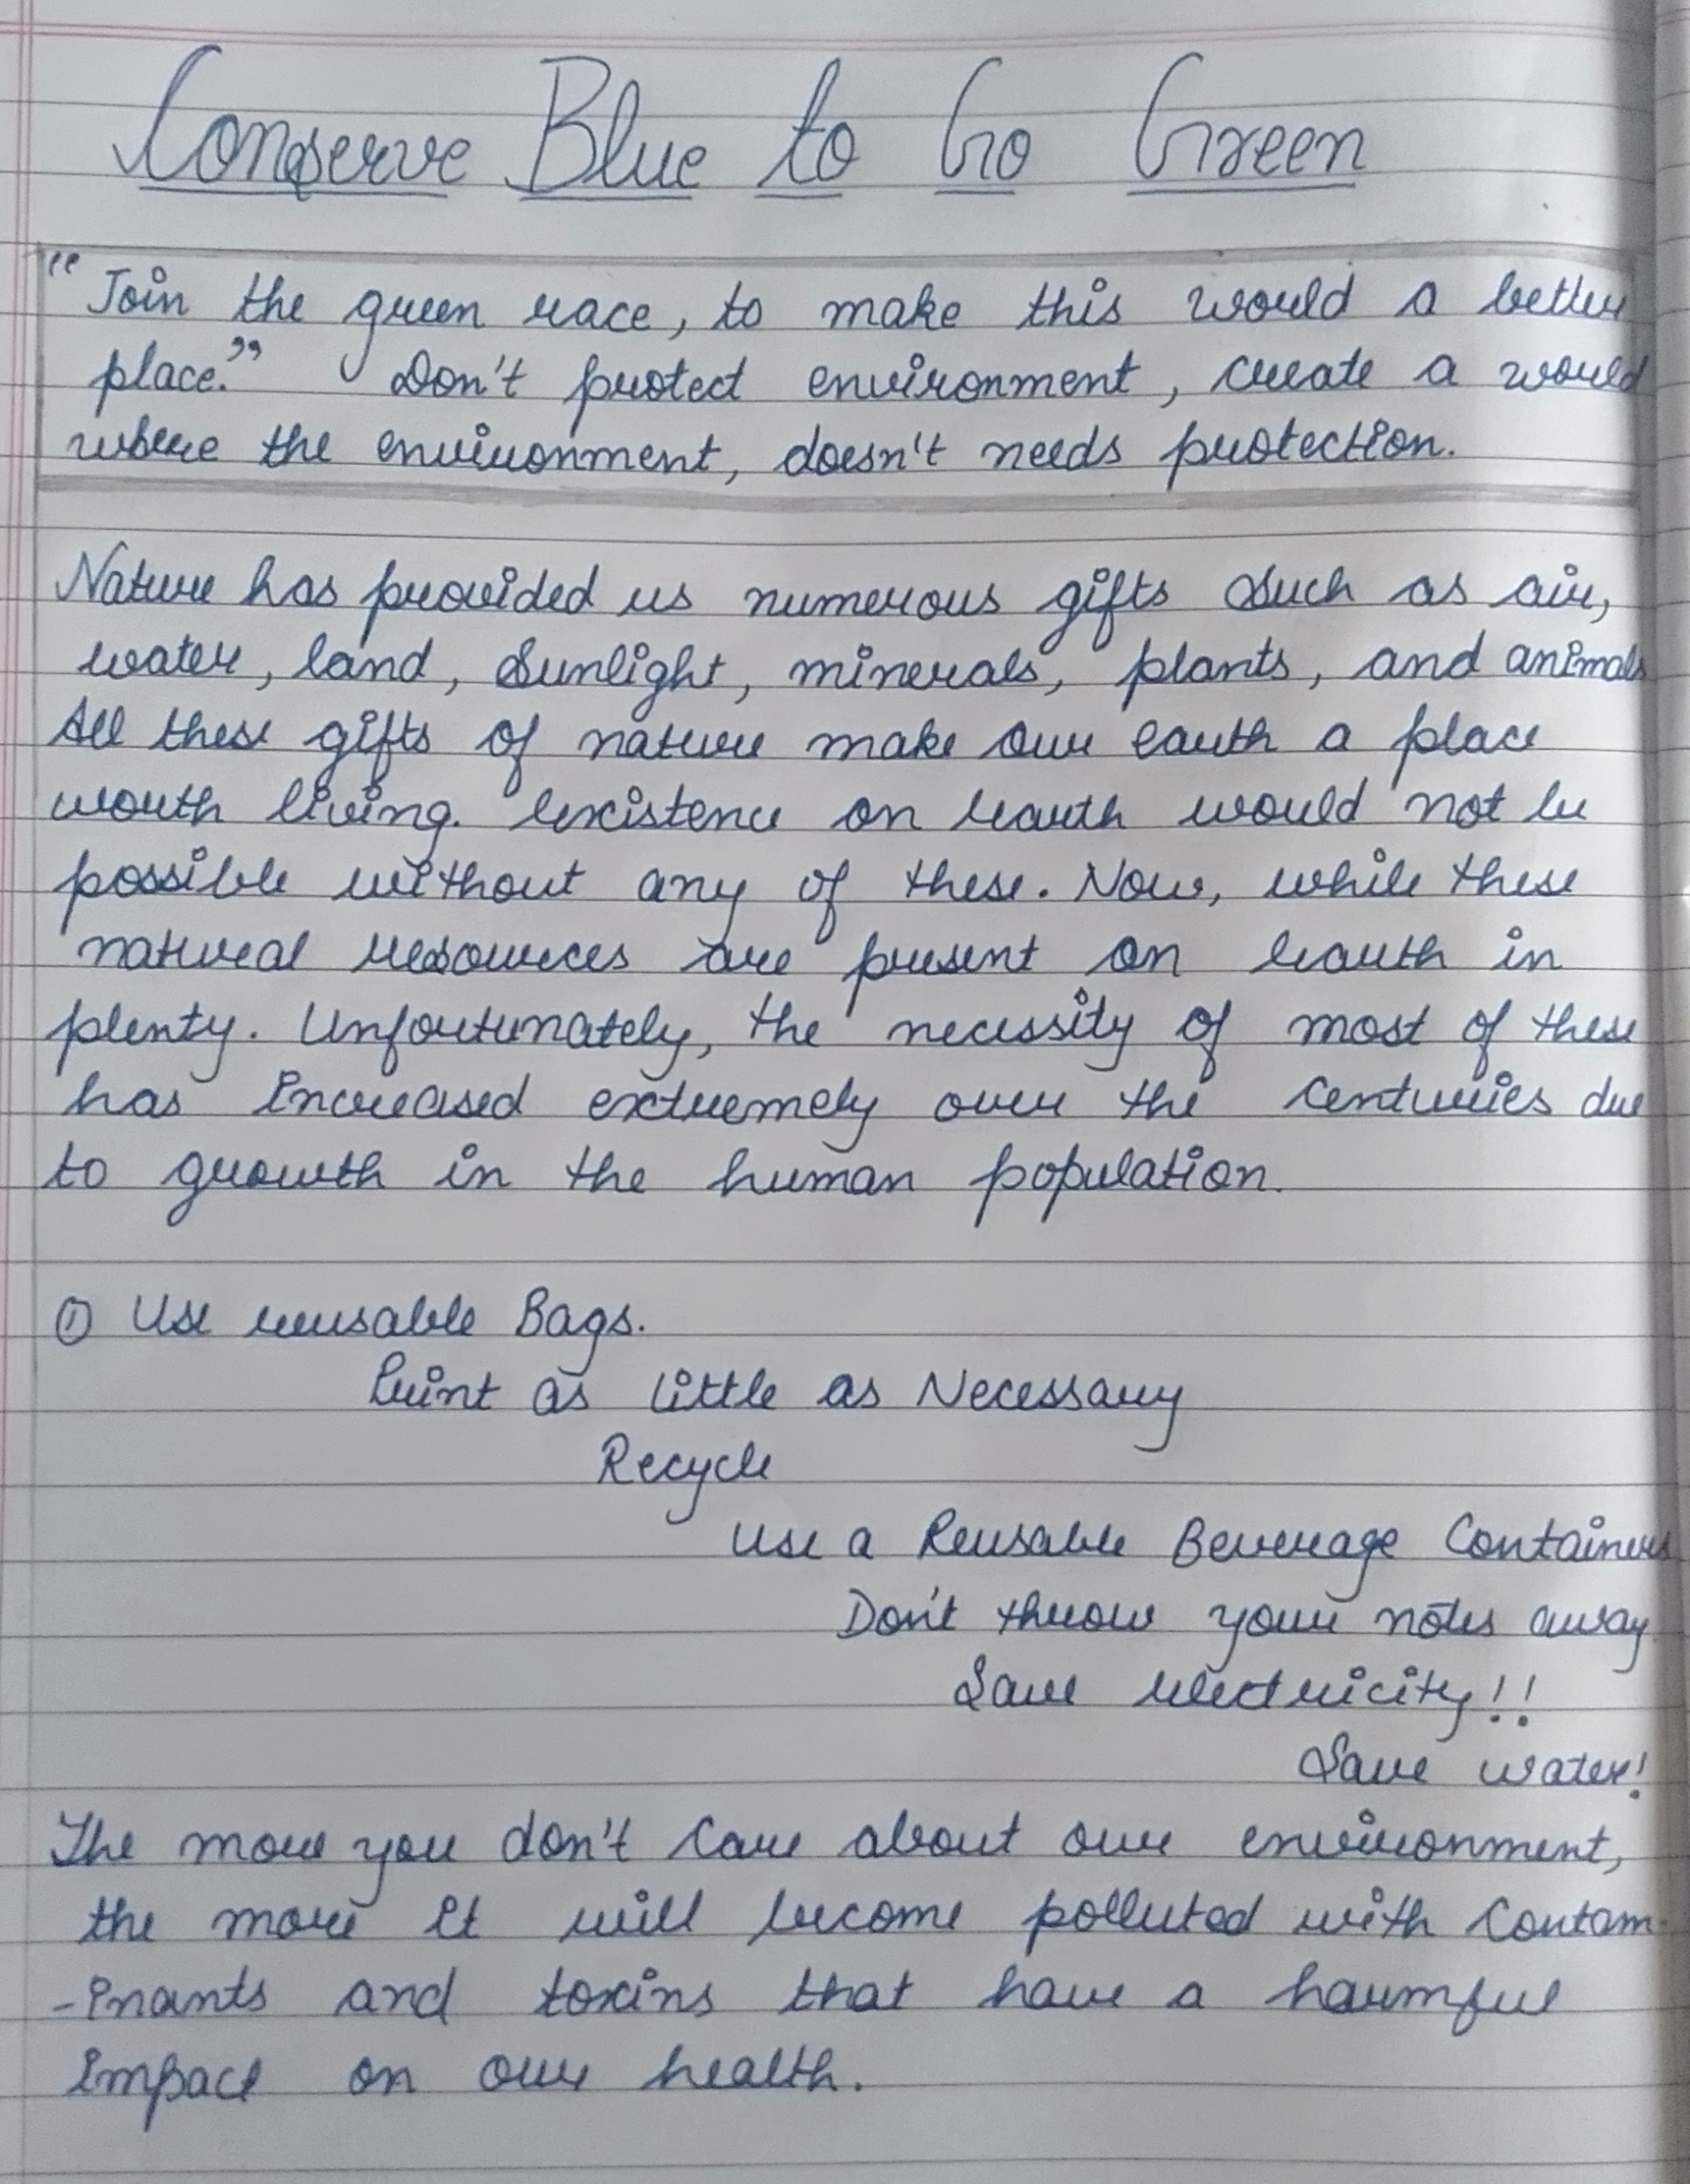 Conserve Blue to Go Green
"Join the green race, to make this would a better
place." Don't protect environment, create a would
where the environment, doesn't needs protection.
Nature has provided us numerous gifts such as air,
water, land, sunlight, minerals, plants, and animals
All these gifts of nature make our earth a place
worth living. Existence on Earth would not be
possible without any of these. Now, while these
natural resources are present on Earth in
plenty. Unfortunately, the necessity of most of these
has increased extremely over the centuries due
to growth in the human population.
① Use reusable Bags.
Print as little as Necessary
Recycle
Use a Reusable Beverage Containers
Don't throw your notes away
Save electricity!!
Save water!
The more you don't care about our environment,
the more it will become polluted with Contam-
-inants and toxins that have a harmful
impact on our health.